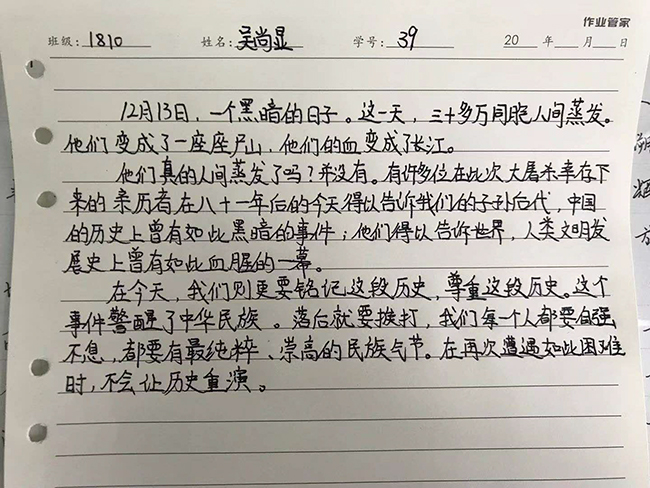 作业管家
班级: 1810 姓名: 吴尚显 学号: 39 20 年 月 日
12月13日,一个黑暗的日子。这一天,三十多万同胞人间蒸发。
他们变成了一座座尸山,他们的血变成了长江。
他们真的人间蒸发了吗?并没有。有许多位在此次大屠杀幸存下
来的亲历者在八十一年后的今天得以告诉我们的子孙后代,中国
的历史上曾有如此黑暗的事件;他们得以告诉世界,人类文明发
展史上曾有如此血腥的一幕。
在今天,我们则更要铭记这段历史,尊重这段历史。这个
事件警醒了中华民族。落后就要挨打,我们每一个人都要自强
不息,都要有最纯粹、崇高的民族气节。在再次遭遇如此困难
时,不会让历史重演。